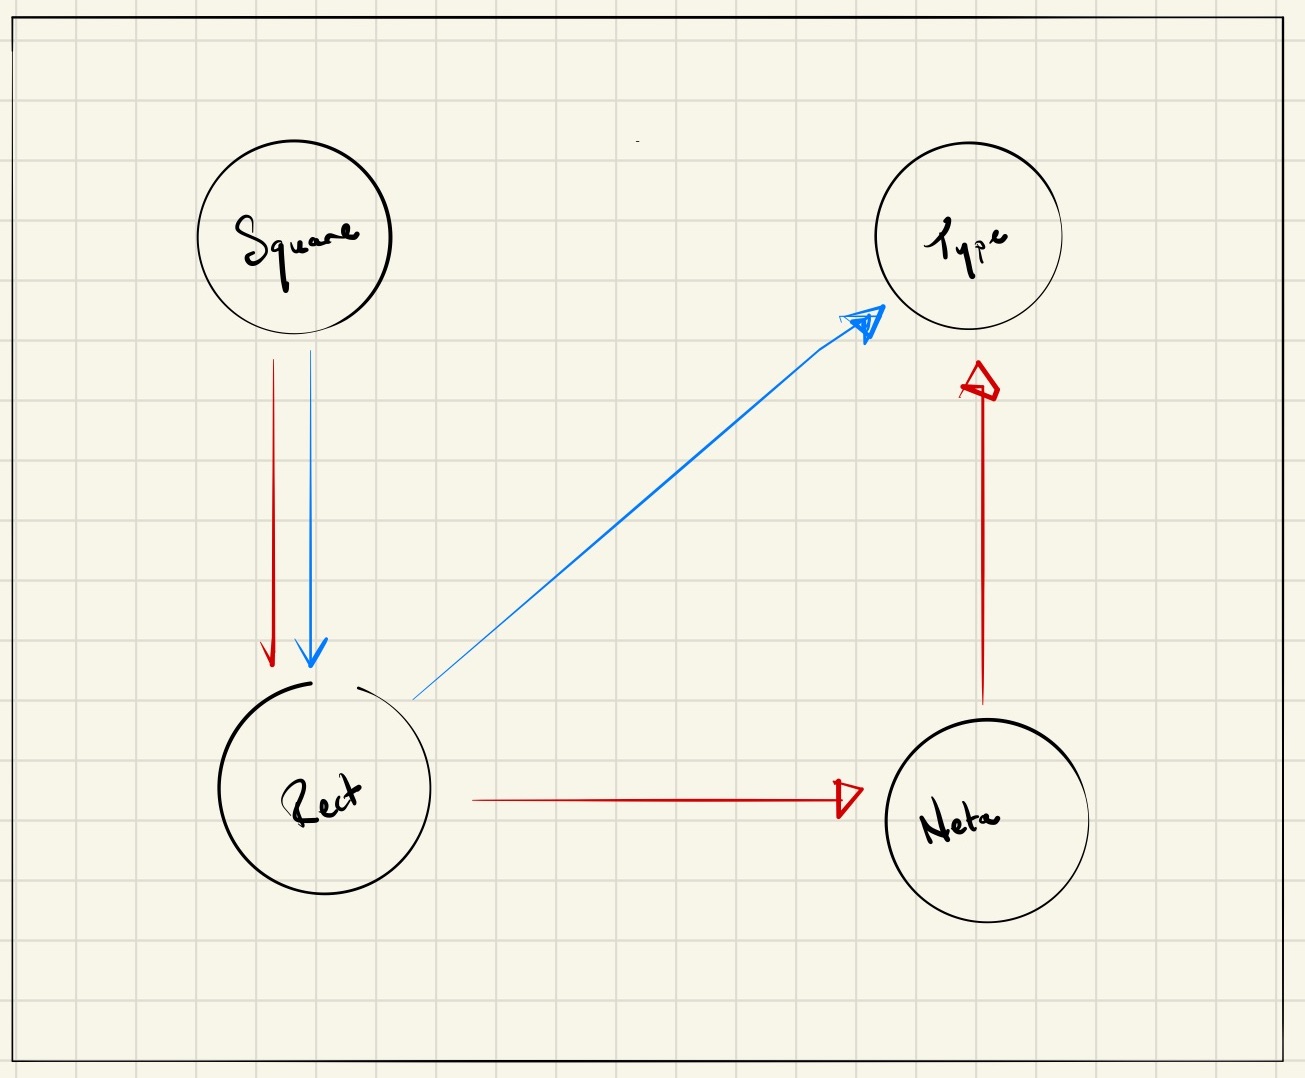 Square
Type
Rect
Meta